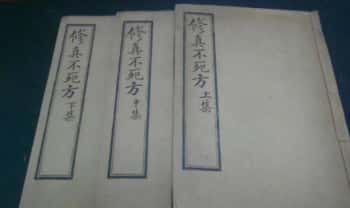 修真不死方上集
修真不死方中集
修真不死方下集